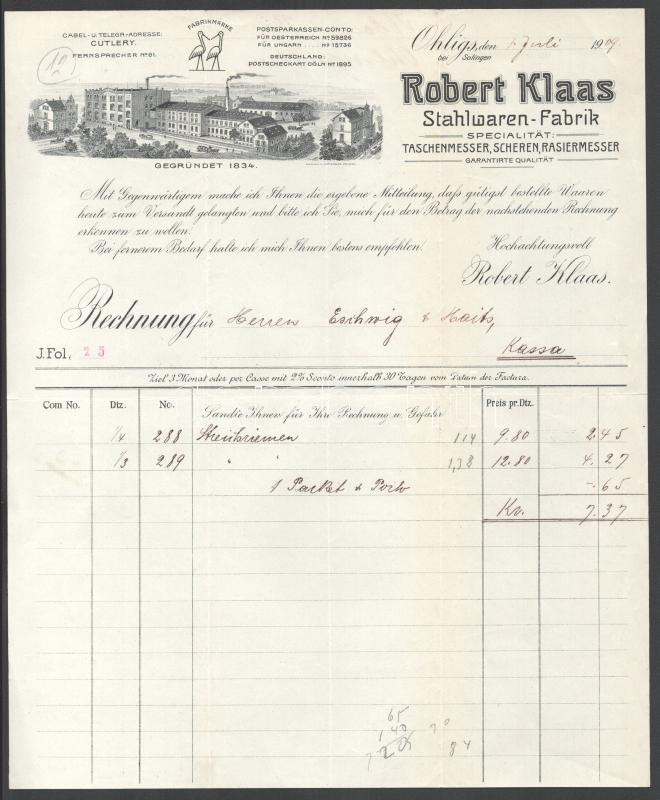 CABEL- U. TELEGR.-ADRESSE:
CUTLERY.
FERNSPRECHER No 61.
10
FABRIKMARKE
POSTSPARKASSEN-CONTO:
FÜR OESTERREICH No 59826
FÜR UNGARN .... No 15736
DEUTSCHLAND:
POSTSCHECKAMT CÖLN No 1895
GEGRÜNDET 1834.
Ohligs, den 1. Juli 1909.
bei Solingen
Robert Klaas
Stahlwaren-Fabrik
SPECIALITÄT:
TASCHENMESSER, SCHEREN, RASIERMESSER
GARANTIRTE QUALITÄT
Mit Gegenwärtigem mache ich Ihnen die ergebene Mitteilung, dass gütigst bestellte Waaren
heute zum Versandt gelangten und bitte ich Sie, mich für den Betrag der nachstehenden Rechnung
erkennen zu wollen.
Bei fernerem Bedarf halte ich mich Ihnen bestens empfohlen.
Hochachtungsvoll
Robert Klaas.
Rechnung für Herren Eschwig &
Kassa
J. Fol. 25
Ziel 3 Monat oder per Casse mit 2% Sconto innerhalb 30 Tagen vom Datum der Factura.
Com No. Dtz. No. Sandte Ihnen für Ihre Rechnung u. Gefahr Preis pr. Dtz.
1/4 288 Streichriemen 114 9.80 2.45
1/3 289 " " 1,38 12.80 4.27
1 Packet & Porto -.65
Kr. 7.37
65
1 40
84